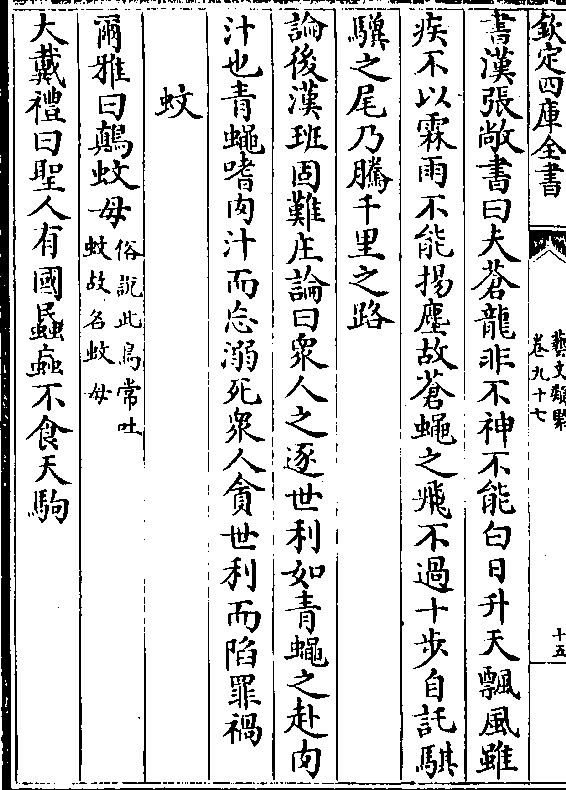 欽定四庫全書
藝文類聚
卷九十七
十五
書漢張敞書曰夫蒼龍非不神不能白日升天飄風雖
疾不以霖雨不能揚塵故蒼蠅之飛不過十步自託騏
驥之尾乃騰千里之路
論後漢班固難庄論曰衆人之逐世利如青蠅之赴肉
汁也青蠅嗜肉汁而忘溺死衆人貪世利而陷罪禍
蚊
爾雅曰鷏蚊母俗説此鳥常吐
蚊故名蚊母
大戴禮曰聖人有國蟁䖟不食天駒